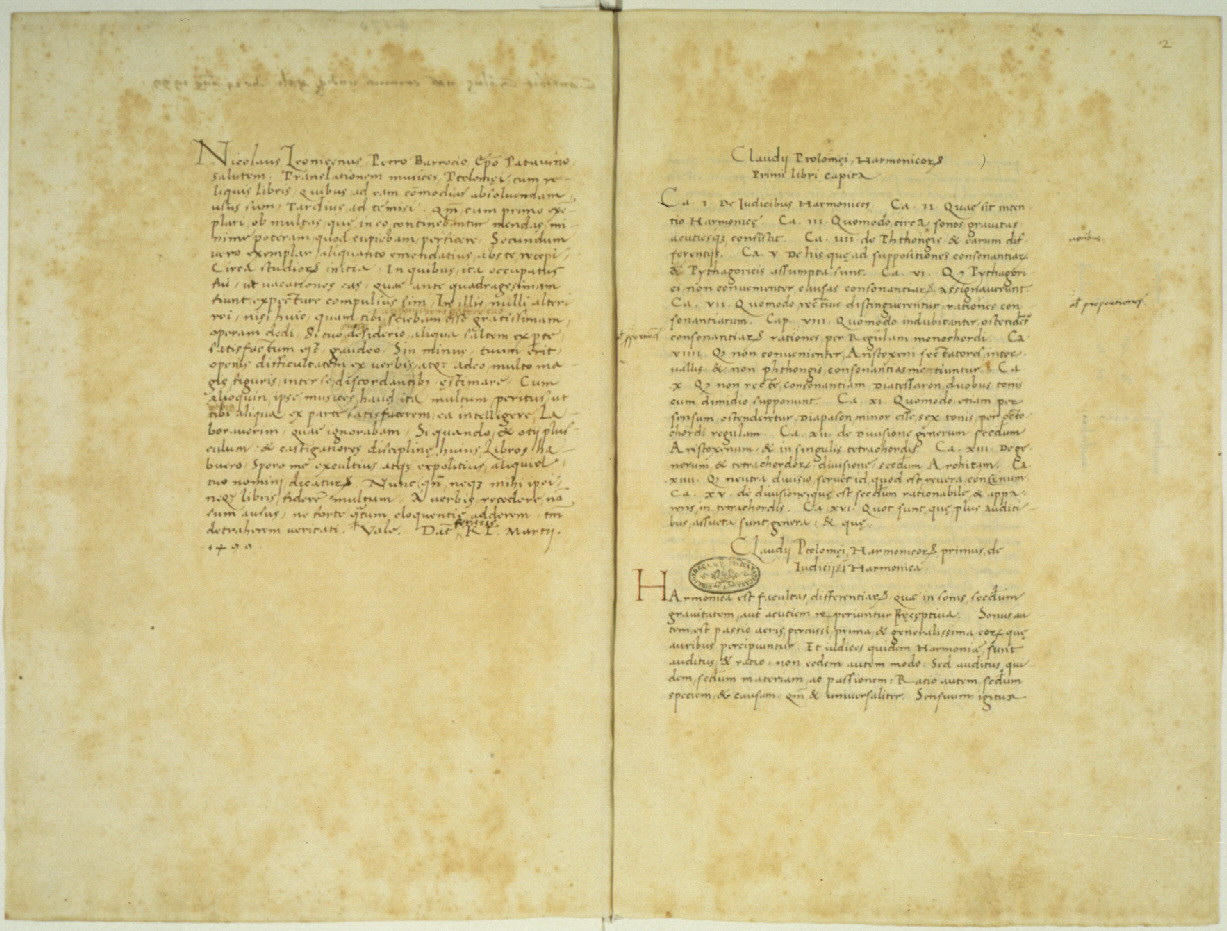 Nicolaus Leonicenus Petro Barrocio Epo Patavino
salutem. Translationem musices Ptolomęi cum re-
liquis libris, quibus ad eam comodius absolvendam
usus sum, Tardius ad te misi. Qm cum primo exe-
plari, ob multas, que in eo continebantur mendas, mi-
nime poteram, quod cupiebam, perficere. Secundum
vero exemplar aliquanto emendatius abs te recepi
Circa studiorum initia. In quibus, ita occupatus
fui, ut vacationes eas, quae ante quadragesimam
fiunt, expectare compulsus sim. In illis nulli alteri
rei, nisi huic, quam tibi sciebam esse gratissimam,
operam dedi, & tuo desiderio aliqua saltem ex pte
satisfactum est, gaudeo. Sin minus, tuum erit
operis difficultatem ex verbis, atqz adeo multo ma-
gis figuris, inter se discordantibus estimare. Cum
alioquin ipse musices, haud ita multum peritus, ut
tibi aliqua ex parte satisfacerem, ea intelligere La-
boraverim, quae ignorabam. Si quando, & otij plus-
culum, & castigatiores discipline huius Libros ha-
buero, Spero me excultius atqz expolitius, aliquid
tuo nomini dicaturum. Nunc, qm neqz mihi ipsi
neqz libris fidere multum. A verbis recedere no
sum ausus, ne forte qtum eloquentię adderem, tm
detraherem veritati. Vale. Dat K L. Martij.
1499.
2
Claudij Ptolomęi, Harmonicorum
Primi libri capita
Ca. I. De Iudicibus Harmonices. Ca. II. Quae sit inten-
tio Harmonicę. Ca. III. Quomodo, circa, sonos gravitas
acuciesqz consistit. Ca. IIII. de Phthongis & earum dif
ferentijs. Ca. V. De his que ad suppositiones consonantiarum
& Pythagoricis assumpta sunt. Ca. VI. Q Pythagori
ei, non convenienter causas consonantiarum assignaverunt
Ca. VII. Quomodo rectius distinguerentur, rationes con
sonantiarum. Cap. VIII. Quomodo indubitanter, ostendetur
consonantiarum rationes per Regulam monochordi. Ca
VIIII. Q non convenienter, Aristoxeni sectatores inter
vallis, & non phthongis consonantias metiuntur. Ca
X. Q non recte consonantiam Diatessaron duobus tonis
cum dimidio supponunt. Ca. XI. Quomodo, etiam per
sensum, ostendetur, Diapason minor esse sex tonis, per octo
chordi regulam. Ca. XII. de Divisione generum secdum
Aristoxenum, & in singulis tetrachordis. Ca. XIII. De ge
nerum & tetrachordorum divisione, secdum Architam. Ca
XIIII. Q neutra divisio, servet id quod est revera concinum
Ca. XV. de divisione, que est secdum rationabile & appa-
rens, in tetrachordis. Ca. XVI. Quot sunt, que plus auditi-
bus, assueta sunt, genera, & quę.
Claudij Ptolomęi, Harmonicorum primus, de
Iudicijs Harmonica
Harmonica est facultas, differentiarum, que in sonis, secdum
gravitatem, aut acutiem reperiuntur, Perceptiva. Sonus au
tem, est passio aeris, percussi, prima, & generalissima eorum que
auribus percipiuntur. Et iudices quidem Harmonię, sunt
auditus, & ratio. non eodem autem modo. Sed auditus, qui
dem, secdum materiam, ac passionem. Ratio autem, secdum
speciem, & causam. qm & universaliter. Sensuum igitur